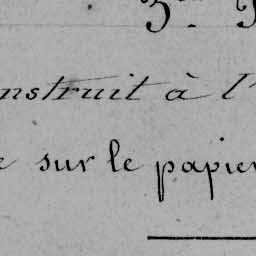 nstruit à l'
sur le papier